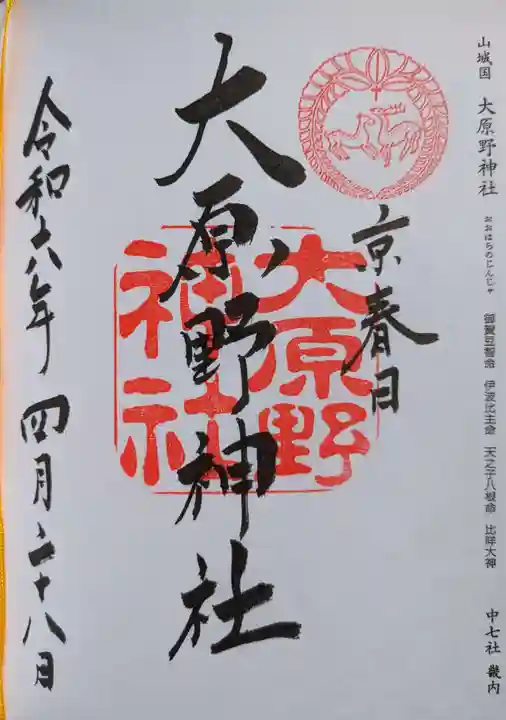 山城国 大原野神社
おおはらのじんじゃ
御賀豆智命 伊波比主命 天之子八根命 比咩大神
中七社 畿内
京春日
大原野神社
大原野
神社
令和六年 四月二十八日